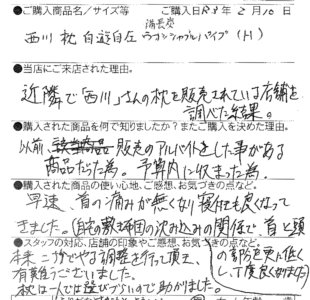 ●ご購入商品名／サイズ等　ご購入日R3年2月10日
備長炭
西川 枕 自遊自在 ウォッシャブルパイプ (H)
●当店にご来店された理由。
近隣で「西川」さんの枕を販売されている店舗を
調べた結果。
●購入された商品を何で知りましたか？またご購入を決めた理由。
以前、販売のアルバイトをした事がある
商品だった為。予算内に収まった為。
●購入された商品の使い心地、ご感想、お気づきの点など。
早速、首の痛みが無くなり寝付も良くなって
きました。(自宅の敷布団の沈み込みの関係で、首と頭
の部分を更に低くし、丁度良く始まった)
●スタッフの対応、店舗の印象やご感想、お気づきの点など。
細かでやる調整を行って頂き、
有難うございました。
枕は一人では選びづらいので助かりました。